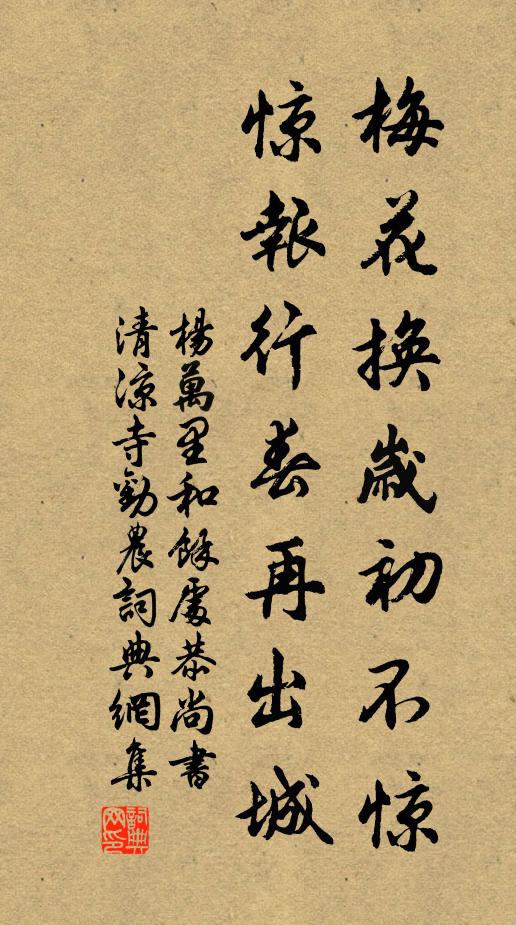 梅花换歳初不惊
惊報行春再出城
楊萬里和餘處恭尚書
清涼寺勸農詞典網集
詞典網印